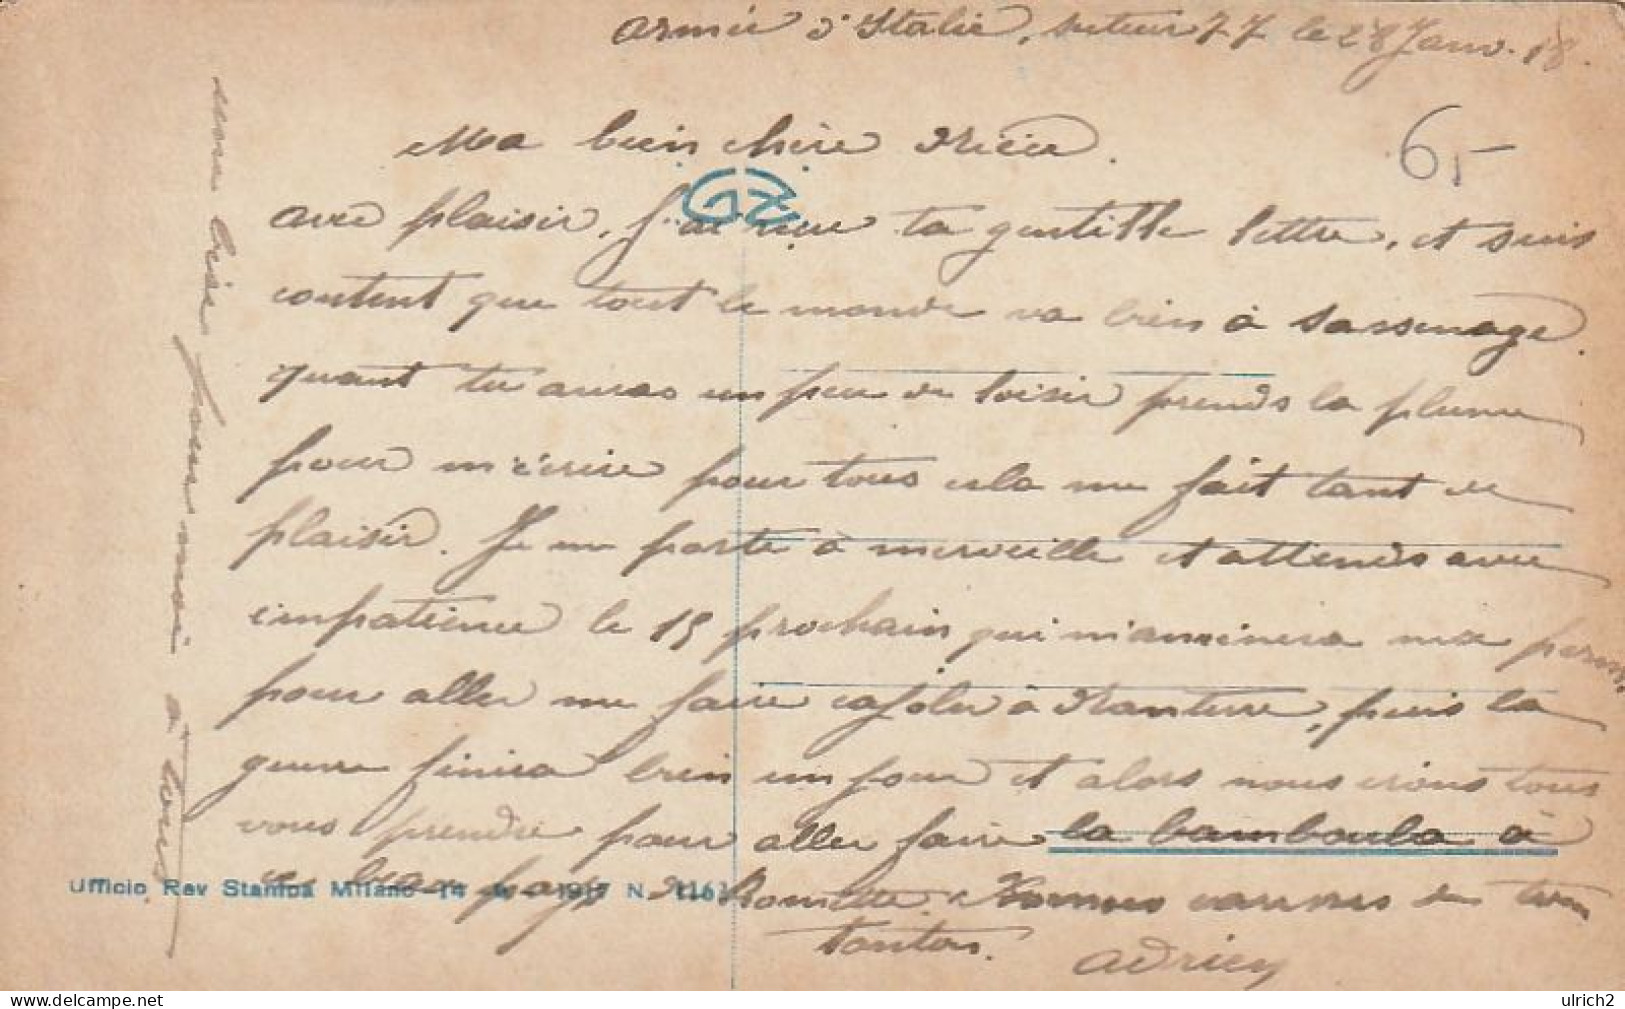 Armée d'Italie, secteur 77 le 28 Janv. 18.
65
Ma bien chère Nièce.
GZ
avec plaisir, j'ai reçu ta gentille lettre, et suis
content que tout le monde va bien à Sassenage.
quant tu auras un peu de loisir prends la plume
pour m'écrire pour tous cela me fait tant de
plaisir. Je me porte à merveille et attends avec
impatience le 15 prochain qui m'aménera ma perm.
pour aller me faire cajoler à Nanterre, puis la
guerre finira bien un jour et alors nous irons tous
vous prendre pour aller faire la bamboula à
ce beau pays de Bonnes caresses du
tonton.
Adrien
bise pour moi à tous
Ufficio Rev Stampa Milano 14 1917 N. 116
ulrich2